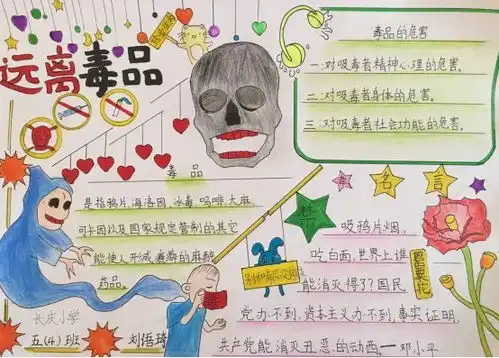 远离毒品
毒品的危害
一:对吸毒者精神心理的危害。
二:对吸毒者身体的危害。
三:对吸毒者社会功能的危害。
毒品
是指鸦片、海洛因、冰毒、吗啡、大麻、
可卡因以及国家规定管制的其它
能使人形成瘾癖的麻醉
药品。
禁毒名言
禁
吸鸦片烟,
吃白面,世界上谁
能消灭得了?国民
党办不到,资本主义办不到,事实证明,
共产党能消灭丑恶的动西。—邓小平
长庆小学
五(4)班
刘语琦